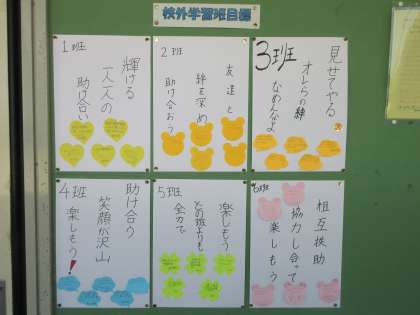 校外学習班目標
1班
輝ける
一人一人の
助け合い
2班
友達と
絆を深め
助け合おう
3班
見せてやる
オレらの絆
なめんなよ
4班
助け合う
笑顔が沢山
楽しもう!
5班
楽しもう
どの班よりも
全力で
6班
相互扶助
協力し合って
楽しもう